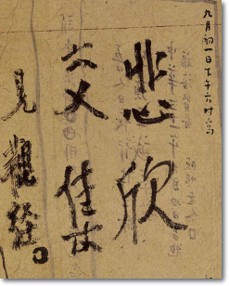 九月初一日下午六时写
悲欣
交集
見觀經。